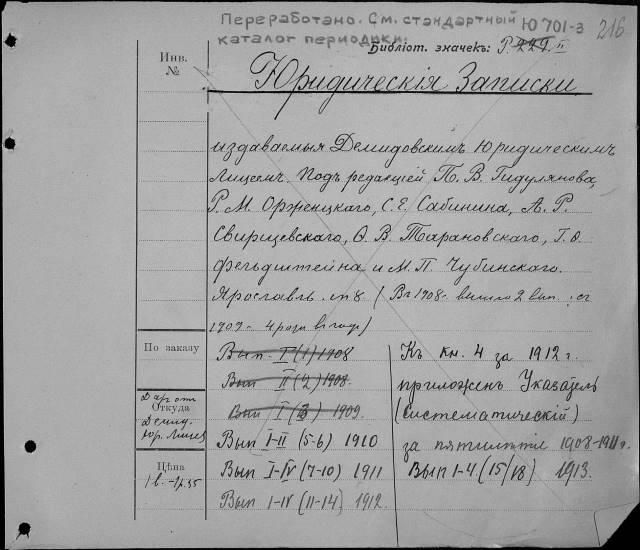 Переработано. См. стандартный Ю701-3
каталог периодики.
216
Библіот. значекъ: Р.222.II
Инв.
№
Юридическія Записки
издаваемыя Демидовскимъ Юридическимъ
Лицеемъ. Подъ редакціей П. В. Гидулянова,
Р. М. Орженцкаго, С. Е. Сабинина, А. Р.
Свирщевскаго, Ѳ. В. Тарановскаго, Г. Ѳ.
Фельдштейна и М. П. Чубинскаго.
Ярославль. in 8. (Въ 1908г. вышло 2 вып. съ
1909г. 4 раза въ годъ)
По заказу
Вып. I (1) 1908
Вып II (2) 1908.
Вып I (3) 1909.
Вып I-II (5-6) 1910
Вып I-IV (7-10) 1911
Вып I-IV (11-14) 1912.
Къ кн. 4 за 1912 г.
приложенъ Указатель
(систематическій)
за пятилѣтіе 1908-1911г.
Вып 1-4 (15/18) 1913.
Даръ отъ
Откуда
Демид.
Юр. Лицея
Цѣна